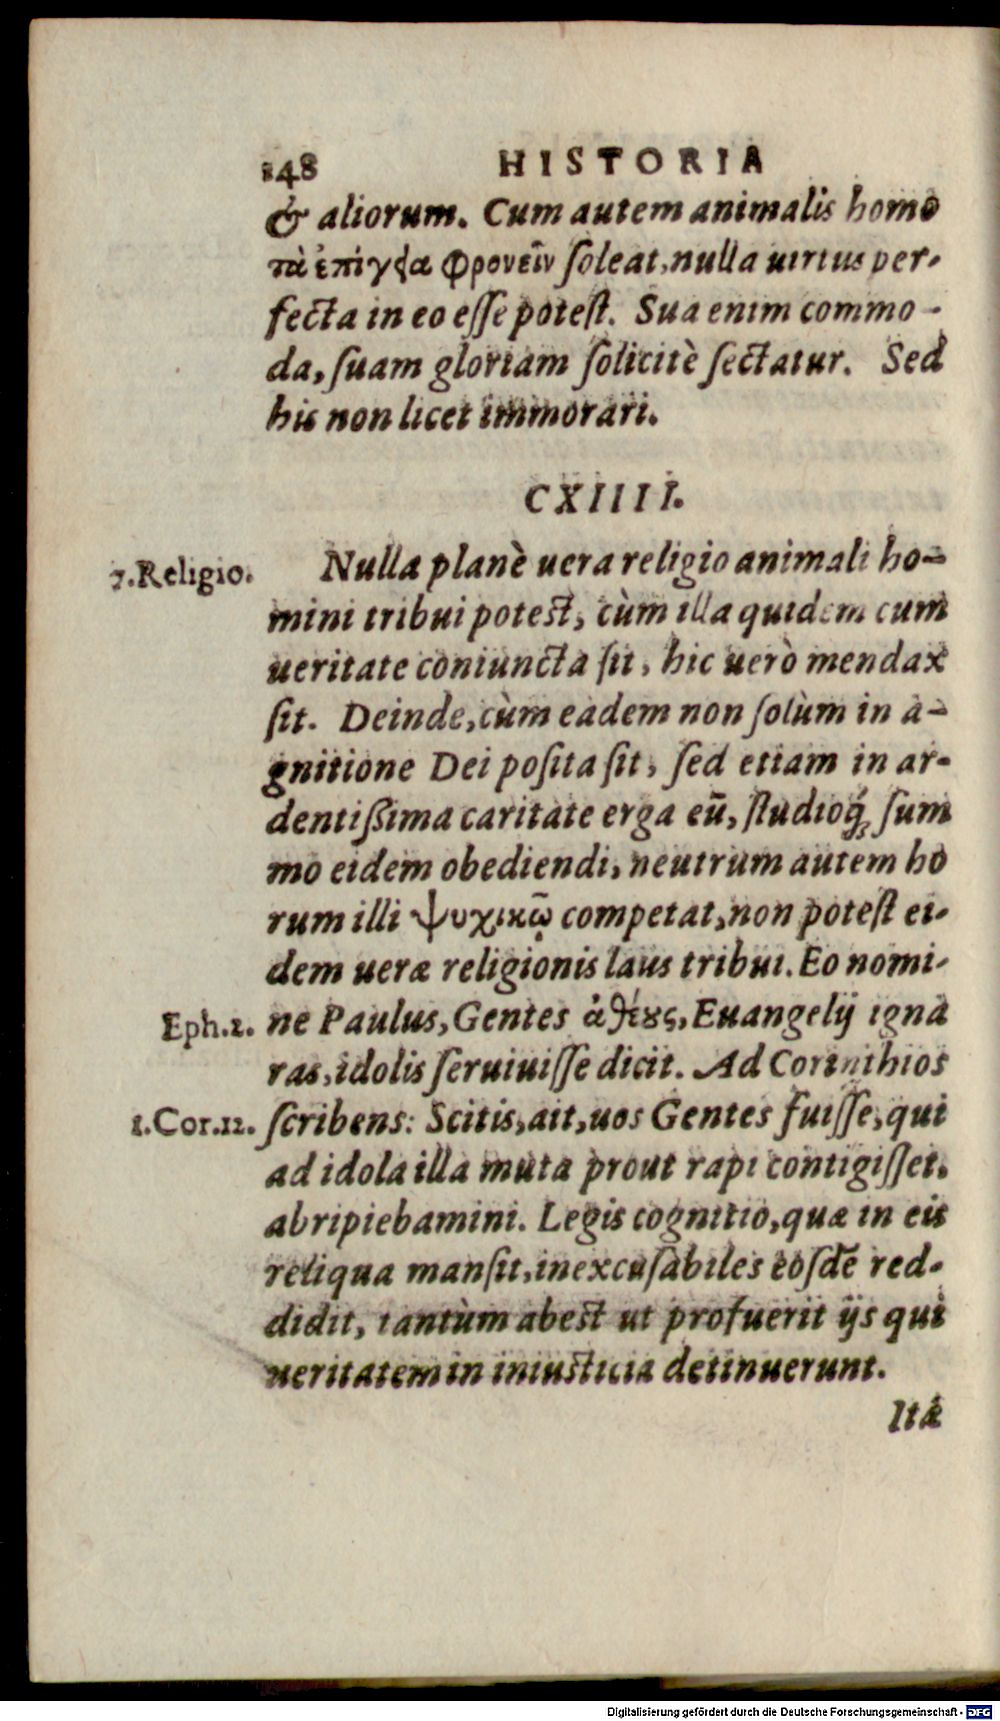 148 HISTORIA
& aliorum. Cum autem animalis homo
τὰ ἐπίγεια φρονεῖν ſoleat, nulla uirtus per-
fecta in eo eſſe poteſt. Sua enim commo-
da, ſuam gloriam ſolicitè ſectatur. Sed
his non licet immorari.
CXIIII.
7. Religio. Nulla planè uera religio animali ho-
mini tribui poteſt, cùm illa quidem cum
ueritate coniuncta ſit, hic uerò mendax
ſit. Deinde, cùm eadem non ſolùm in a-
gnitione Dei poſita ſit, ſed etiam in ar-
dentißima caritate erga eū, ſtudioq́ꝫ ſum
mo eidem obediendi, neutrum autem ho
rum illi ψυχικῷ competat, non poteſt ei-
dem ueræ religionis laus tribui. Eo nomi-
Eph. 2. ne Paulus, Gentes ἀθέȣς, Euangelij igna
ras, idolis ſeruiuiſſe dicit. Ad Corinthios
1. Cor. 12. ſcribens: Scitis, ait, uos Gentes fuiſſe, qui
ad idola illa muta prout rapi contigiſſet,
abripiebamini. Legis cognitio, quæ in eis
reliqua manſit, inexcuſabiles eoſdē red-
didit, tantùm abeſt ut profuerit ijs qui
ueritatem in iniuſticia detinuerunt.
Ita
Digitalisierung gefördert durch die Deutsche Forschungsgemeinschaft - DFG